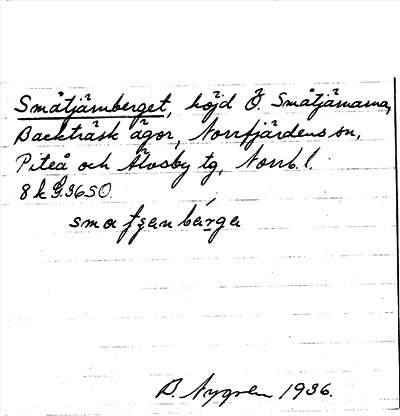 Småtjärnberget, höjd Ö. Småtjärnarna,
Backträsk ägor, Norrfjärdens sn,
Piteå och Älvsby tg, Norrb. l.
8 k G.36SO.
B. Nygren 1936.